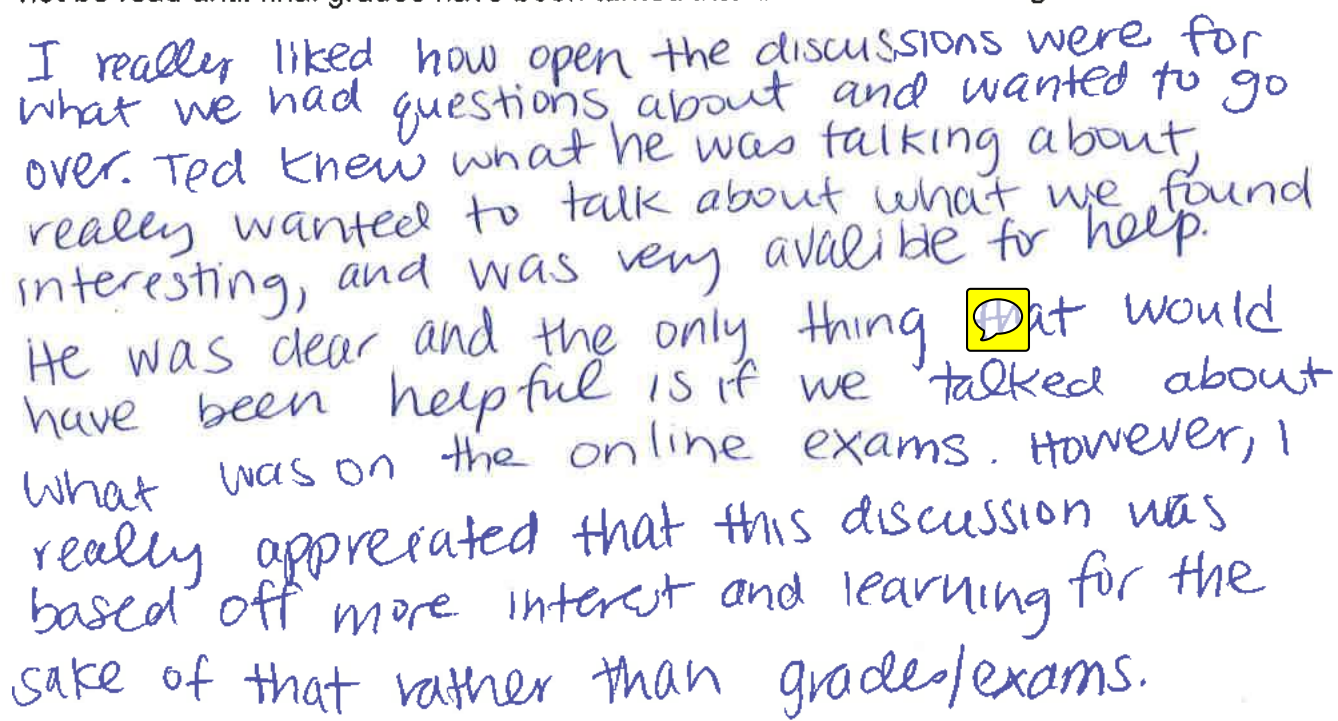 not be read until final grades have been turned
I really liked how open the discussions were for
what we had questions about and wanted to go
over. Ted knew what he was talking about,
really wanted to talk about what we found
interesting, and was very avalible for help.
He was clear and the only thing that would
have been helpful is if we talked about
what was on the online exams. However, I
really appreciated that this discussion was
based off more interest and learning for the
sake of that rather than grades/exams.